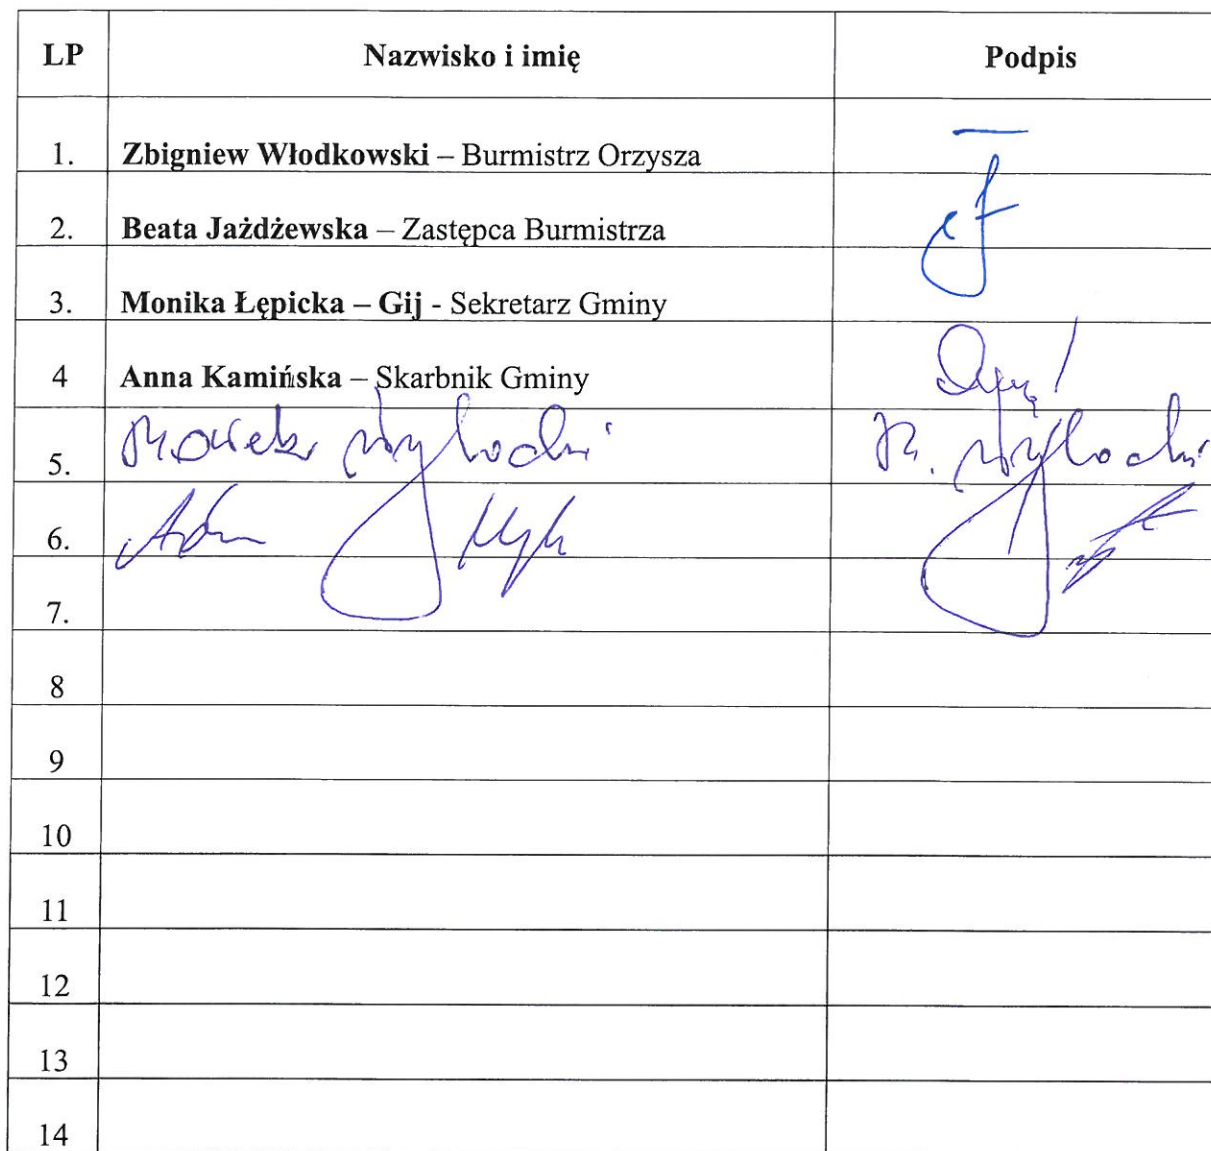 LP Nazwisko i imię Podpis
1. Zbigniew Włodkowski – Burmistrz Orzysza
2. Beata Jażdżewska – Zastępca Burmistrza
3. Monika Łępicka – Gij - Sekretarz Gminy
4 Anna Kamińska – Skarbnik Gminy
5.
6. Adam
7.
8
9
10
11
12
13
14